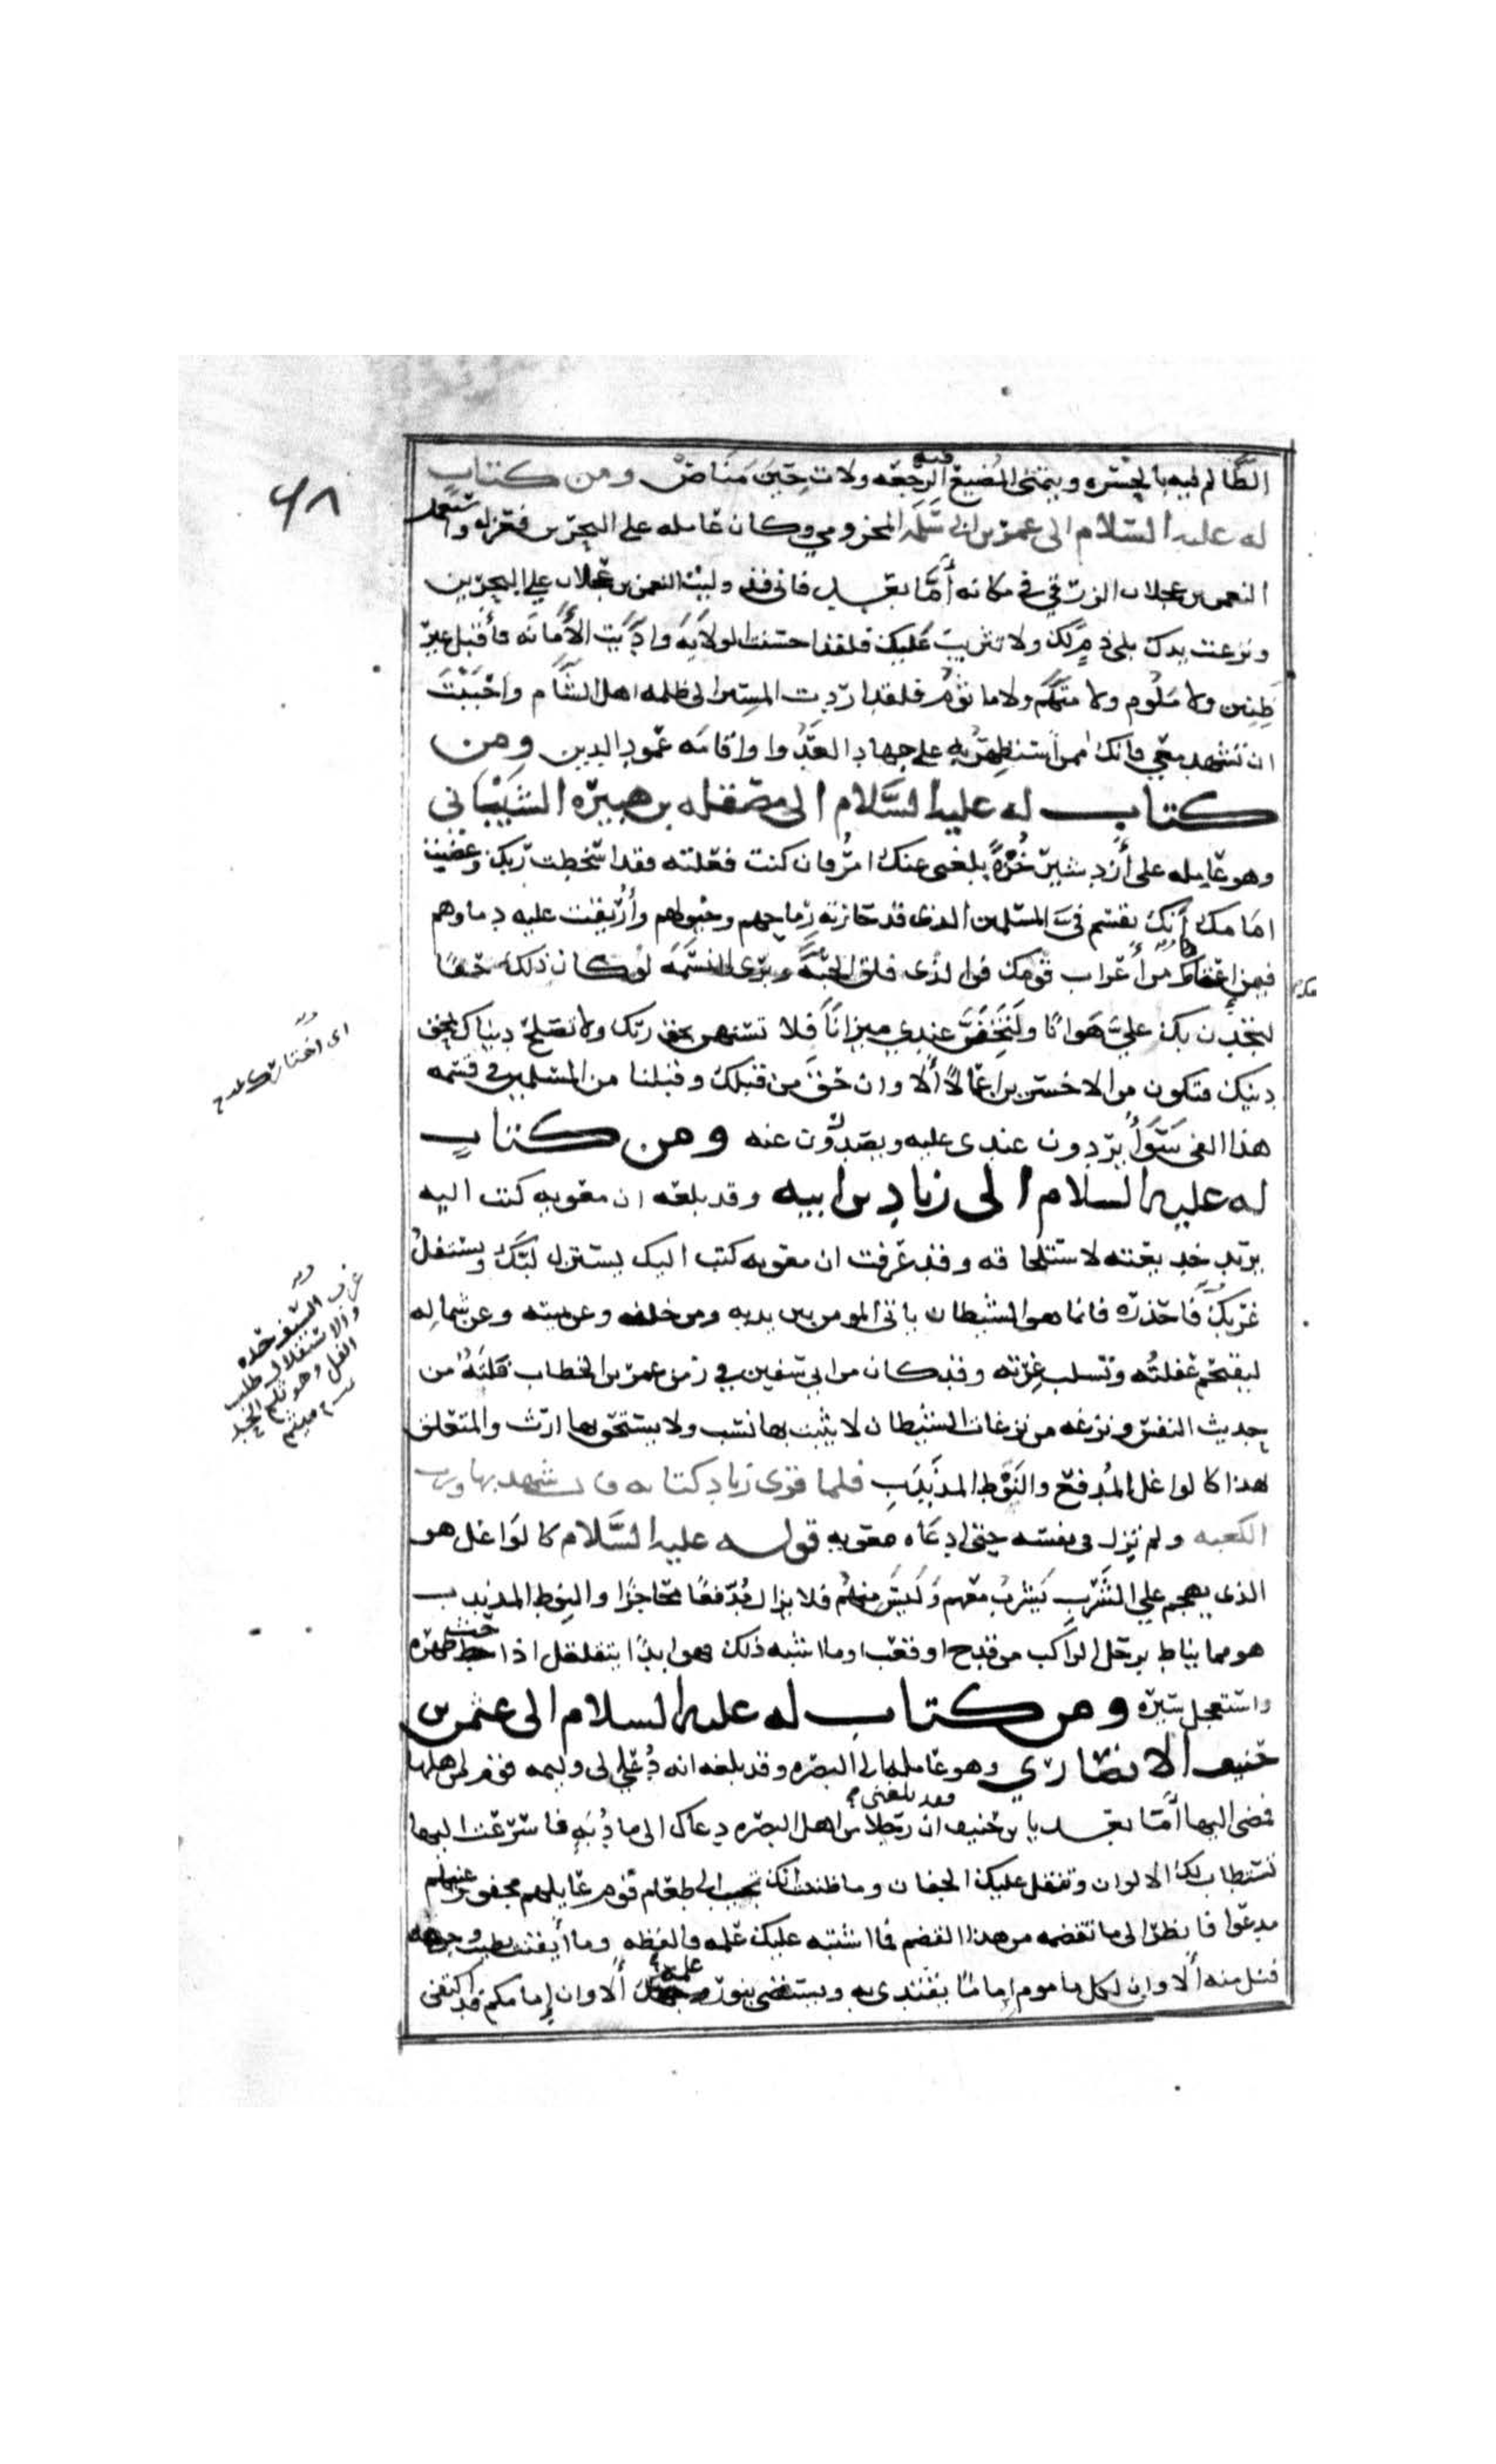 الظالم فيه بالحسره ويتمنى المضيع فيه الرجعه ولات حين مناص ومن كتاب
له عليه السلام الى عمر بن ابى سلمه المخزومي وكان عامله على البحرين فعزله واستعمل
النعمن بن عجلان الزرقي في مكانه أما بعد فانى قد وليت النعمن بن عجلان على البحرين
ونزعت يدك بلى ذم لك ولا تثريب عليك فلقد احسنت الولاية وادّيت الأمانه فأقبل غير
ظنين ولا ملوم ولا متهم ولا ماثوم فلقد اردت المسير الى ظلمه اهل الشام واحببت
ان تشهد معي فانك ممن استظهر به على جهاد العدو واقامه عمود الدين ومن
كتاب له عليه السلام الى مصقله بن هبيره الشيباني
وهو عامله على أردشير خره بلغنى عنك امر فان كنت فعلته فقد اسخطت ربك وعصيت
امامك أنك تقسم فىء المسلمين الذى قد حازته رماحهم وخيولهم وأريقت عليه دماوهم
فيمن اعتامك من أعراب قومك فو الذى فلق الحبة وبرى النسمه لئن كان ذلك حقا
لتجدن بك عليّ هوانا ولتخفن عندي ميزانا فلا تستهن بحق ربك ولا تصلح دنياك بمحق
دينك فتكون من الاخسرين اعمالا ألا وان حق من قبلك وقبلنا من المسلمين في قسمه
هذا الفى سَوَاء يردون عندى عليه ويصدرون عنه ومن كتاب
له عليه السلام الى زياد بن ابيه وقد بلغه ان معويه كتب اليه
يريد خديعته لاستلحاقه وقد عرفت ان معويه كتب اليك يستزل لبّك ويستفل
غربك فاحذره فانما هو الشيطان ياتى المومن من بين يديه ومن خلفه وعن يمينه وعن شماله
ليقتحم غفلته وتستلب غرته وقد كان من ابى سفين في زمن عمر بن الخطاب فلته من
حديث النفس ونزغه من نزغات الشيطان لا يثبت بها نسب ولا يستحق بها ارث والمتعلق
بهذا كالواغل المدفع والنوط المذبذب فلما قرى زياد كتابه قال شهد بها ورب
الكعبه ولم تزل فى نفسه حتى ادعاه معويه قوله عليه السلام كالواغل هو
الذى يهجم علي الشرب ليشرب معهم وليس منهم فلا يزال مدفعا محاجزا والنوط المذبذب
هو مما يناط برحل الراكب من قدح او قعب او ما اشبه ذلك فهو ابدا يتقلقل اذا حث ظهره
واستعجل سيره ومن كتاب له عليه السلام الى عثمن بن
حنيف الانصاري وهو عامله على البصره وقد بلغه انه دُعي الى وليمه قوم من اهلها
فمضى اليها أما بعد يا بن حنيف فقد بلغنى ان رجلا من اهل البصره دعاك الى مادبه فاسرعت اليها
تستطاب لك الالوان وتنقل عليك الجفان وما ظننت انك تجيب الى طعام قوم عايلهم مجفو وغنيهم
مدعوا فانظر الى ما تقضمه من هذا المقضم فما اشتبه عليك علمه فالفظه وما أيقنت بطيب وجوهه
فنل منه ألا وان لكل ماموم إماما يقتدى به ويستضى بنور علمه ألا وان إمامكم قد اكتفى
اى اختارك
غرب السيف حده
والاستفلال طلب
الفل وهو ثلم الحد
ميثم